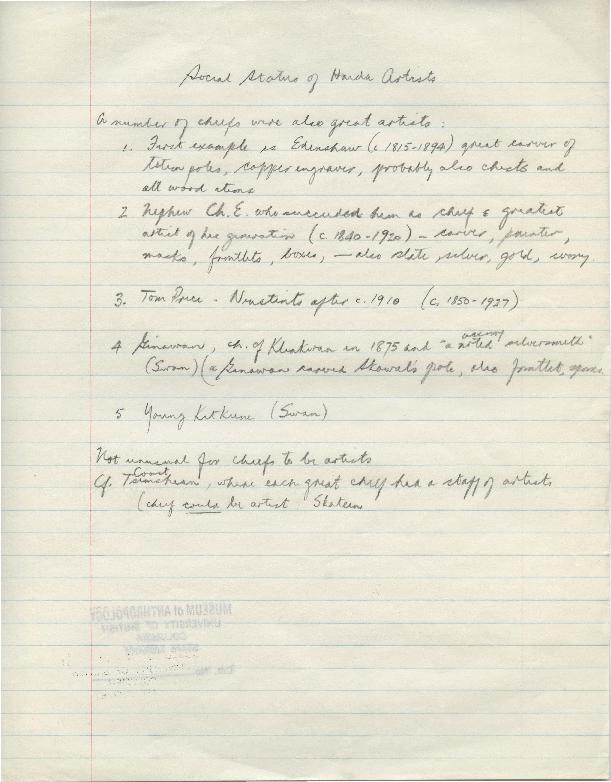 Social Status of Haida Artists
A number of chiefs were also great artists:
1. First example is Edenshaw (c 1815-1894) great carver of
totem poles, copper engraver, probably also chests and
all wood items
2 Nephew Ch. E. who succeeded him as chief & greatest
artist of his generation (c. 1840-1920) – carver, painter,
masks, frontlets, boxes, – also slate silver, gold, ivory.
3. Tom Price - Ninstints after c. 1910 (c. 1850-1927)
4 Ginawan, ch. of Klinkwan in 1875 and "a noted silversmith"
(Swan) (a Ginawan carved Skowal's pole, also frontlet, spoons
5 Young Kitkune (Swan)
Not unusual for chiefs to be artists
Cf. Coast Tsimshean, where each great chief had a staff of artists
(chief could be artist Skateen
MUSEUM of ANTHROPOLOGY
UNIVERSITY OF BRITISH
COLUMBIA